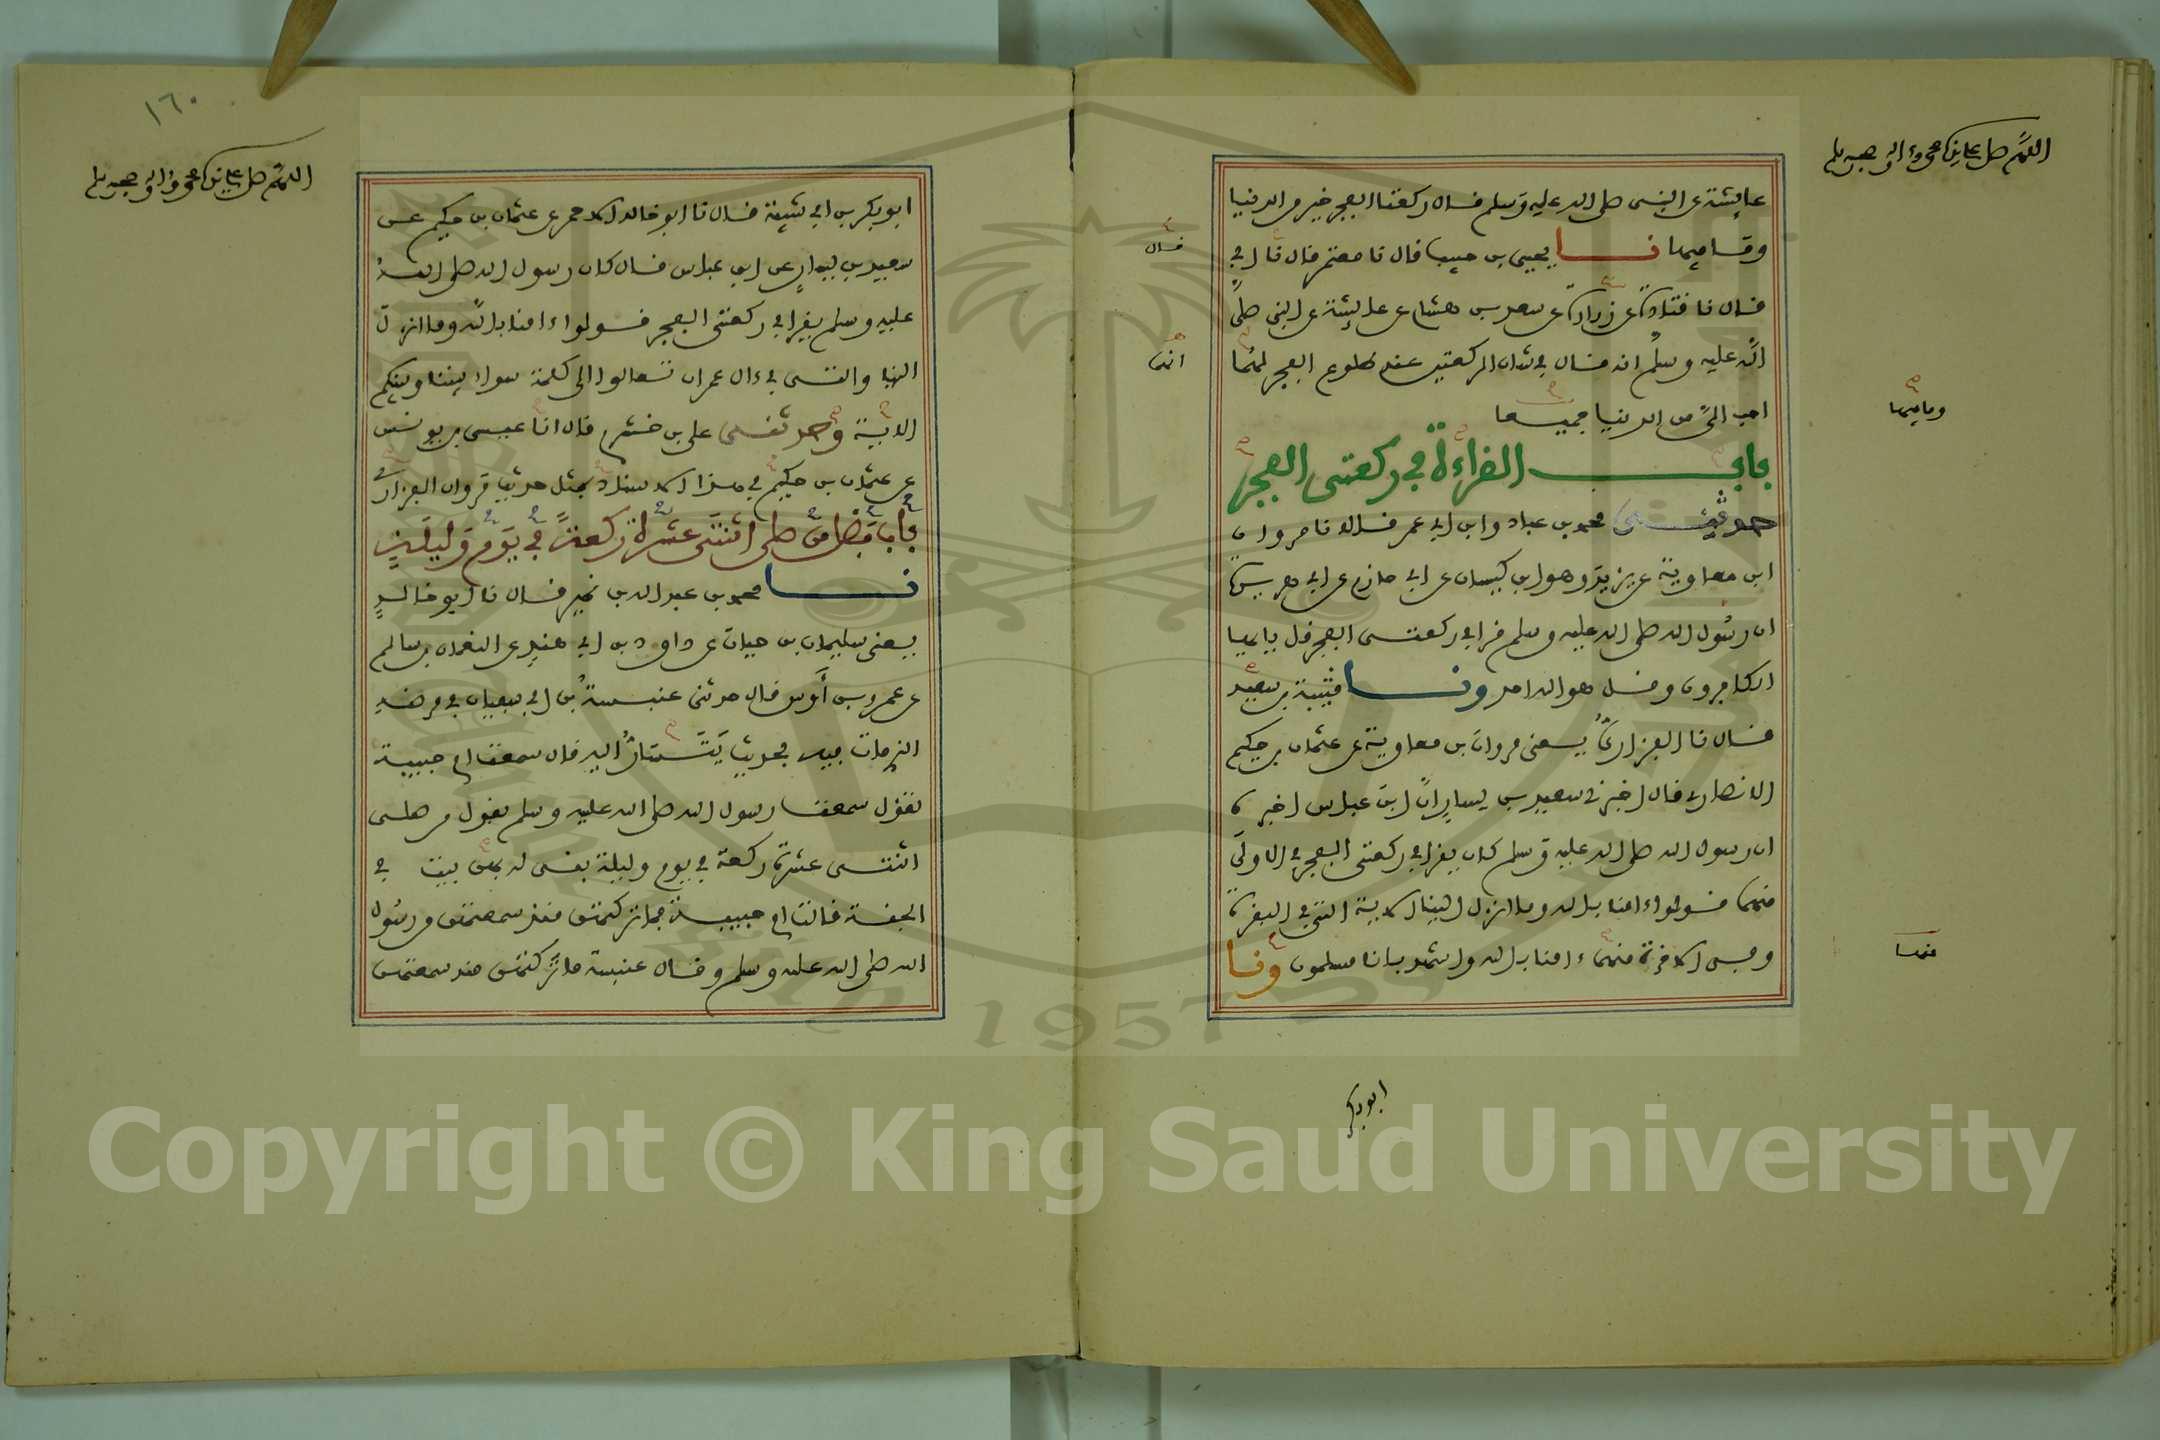 اللهم صل على سيدنا محمد وءاله وصحبه وسلم
عايشة عن النبي صلى الله عليه وسلم فال ركعتا البجر خير من الدنيا
وما بيها نا يحيى بن حبيب فال نا معتمر فال نا ابي
فال
فال نا فتادة عن زرارة عن سعد بن هشام عن عايشة عن النبي صلى
الله عليه وسلم انه فال في شان الركعتين عند طلوع البجر لهما
احب الي من الدنيا جميعا
وما بيها
باب الفراءة في ركعتي البجر
حدثني محمد بن عباد وابن ابي عمر فالا نا مروان
ابن معاوية عن يزيد وهو ابن كيسان عن ابي حازم عن ابي هريرة
ان رسول الله صلى الله عليه وسلم فرا في ركعتي البجر فل يايها
الكابرون وفل هو الله احد ونا فتيبة بن سعيد
فال نا البزاري يعني مروان بن معاوية عن عثمان بن حكيم
الانصاري فال اخبرني سعيد بن يسار ان ابن عباس اخبره
ان رسول الله صلى الله عليه وسلم كان يفرا في ركعتي البجر في الاولى
منهما فولوا ءامنا بالله وما انزل الينا الاية التي في البفرة
وفي الاخرة منهما ءامنا بالله واشهد بانا مسلمون ونا
منهما
ابو بكر
١٦٠
اللهم صل على سيدنا محمد وءاله وصحبه وسلم
ابو بكر بن ابي شيبة فال نا ابو خالد الاحمر عن عثمان بن حكيم عن
سعيد بن يسار عن ابن عباس فال كان رسول الله صلى الله
عليه وسلم يفرا في ركعتي البجر فولوا ءامنا بالله وما انزل
الينا والتي في ءال عمران تعالوا الى كلمة سواء بيننا وبينكم
الاية وحدثني علي بن خشرم فال انا عيسى بن يونس
عن عثمان بن حكيم في هذا الاسناد بمثل حديث مروان البزاري
باب فضل من صلى اثنتي عشرة ركعة في يوم وليلة
نا محمد بن عبد الله بن نمير فال نا ابو خالد
يعني سليمان بن حيان عن داود بن ابي هند عن النعمان بن سالم
عن عمرو بن أوس فال حدثني عنبسة بن ابي سبيان في مرضه
الذي مات بيه بحديث يتسار اليه فال سمعت ام حبيبة
تفول سمعت رسول الله صلى الله عليه وسلم يفول من صلى
اثنتي عشرة ركعة في يوم وليلة بني له بهن بيت في
الجنة فالت ام حبيبة بما تركتهن منذ سمعتهن من رسول
الله صلى الله عليه وسلم وفال عنبسة ما تركتهن منذ سمعتهن
Copyright © King Saud University
1957